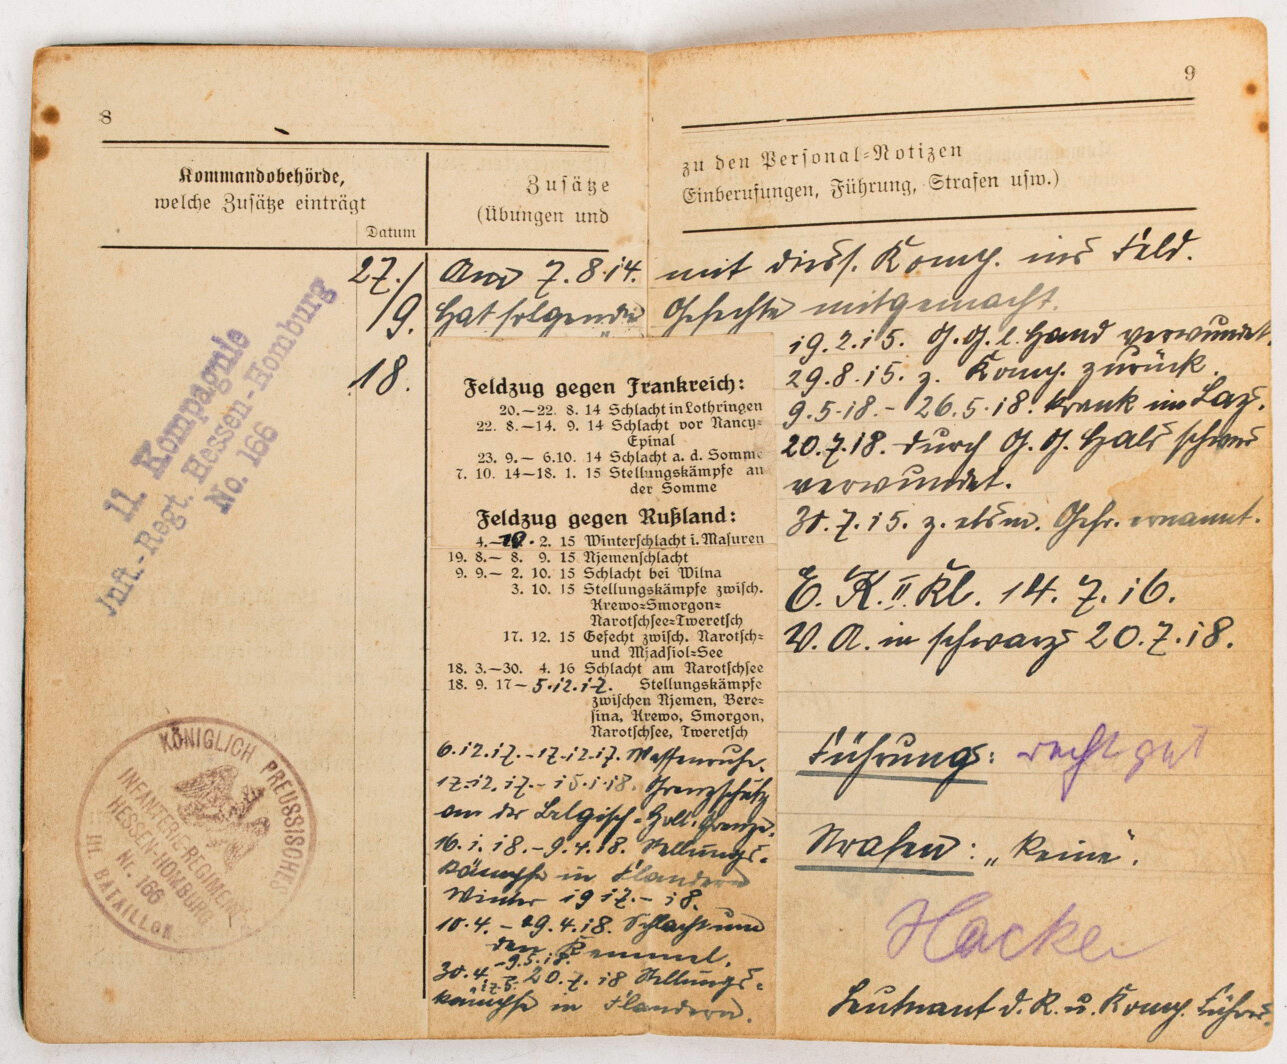 8
Kommandobehörde,
welche Zusätze einträgt
Datum
Zusätze
(Übungen und
11. Kompagnie
Inft.-Regt. Hessen-Homburg
No. 166
27./
9.
18.
Am 7.8.14.
Hat folgende
Feldzug gegen Frankreich:
20.—22. 8. 14 Schlacht in Lothringen
22. 8.—14. 9. 14 Schlacht vor Nancy-
Epinal
23. 9.— 6.10. 14 Schlacht a. d. Somme
7. 10. 14—18. 1. 15 Stellungskämpfe an
der Somme
Feldzug gegen Rußland:
4.—19. 2. 15 Winterschlacht i. Masuren
19. 8.— 8. 9. 15 Njemenschlacht
9. 9.— 2. 10. 15 Schlacht bei Wilna
3. 10. 15 Stellungskämpfe zwisch.
Krewo-Smorgon-
Narotschsee-Tweretsch
17. 12. 15 Gefecht zwisch. Narotsch-
und Mjadsiol-See
18. 3.—30. 4. 16 Schlacht am Narotschsee
18. 9. 17— 5.12.17. Stellungskämpfe
zwischen Njemen, Bere-
sina, Krewo, Smorgon,
Narotschsee, Tweretsch
6.12.17.-17.12.17. Waffenruhe.
17.12.17.-15.1.18. Grenzschutz
an der Belgisch-Holl. Grenze.
16.1.18.-9.4.18. Stellungs-
kämpfe in Flandern
Winter 1917.-18.
10.4.-29.4.18. Schlacht um
den Kemmel.
30.4.-9.5.18.
20.7.18 Stellungs-
kämpfe in Flandern.
KÖNIGLICH PREUSSISCHES
INFANTERIE-REGIMENT
HESSEN-HOMBURG
Nr. 166
III. BATAILLON
9
zu den Personal-Notizen
Einberufungen, Führung, Strafen usw.)
mit dies. Komp. ins Feld.
Gefechte mitgemacht.
19.2.15. G. G. l. Hand verwundet.
29.8.15. z. Komp. zurück.
9.5.18.- 26.5.18. krank im Laz.
20.7.18. durch G. G. Hals schwer
verwundet.
30.7.15. z. Gefr. ernannt.
E. K. II Kl. 14.7.16.
V. A. in schwarz 20.7.18.
Führung: recht gut
Strafen: „Keine“.
Hacker
Leutnant d. R. u. Komp. Führer.